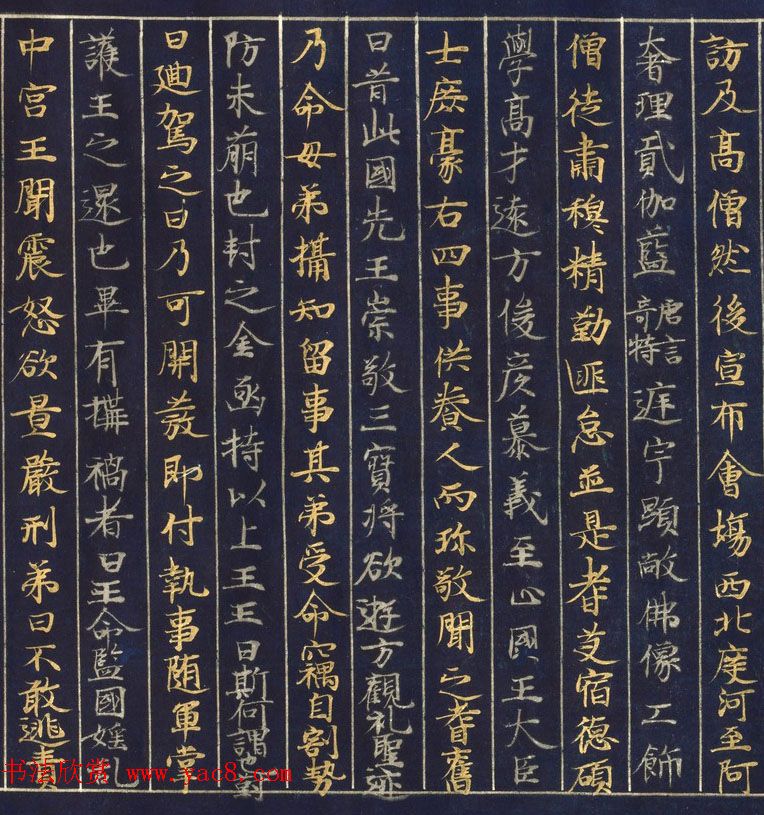 訪及髙僧然後宣布會塲西北度河至阿
奢理貳伽藍唐言奇特庭宇顯敞佛像工飾
僧徒肅穆精勤匪怠並是耆艾宿徳碩
學髙才遠方俊彦慕義至止國王大臣
士庶豪右四事供養久而弥敬聞之耆舊
曰昔此國先王崇敬三寶将欲遊方觀礼聖迹
乃命母弟攝知留事其弟受命竊自割勢
防未萠也封之金函持以上王王曰斯何謂也對
曰廻駕之日乃可開發即付執事随軍掌
護王之還也果有搆禍者曰王命監國婬乱
中宫王聞震怒欲置嚴刑弟曰不敢逃責
书法欣赏 www.yac8.com